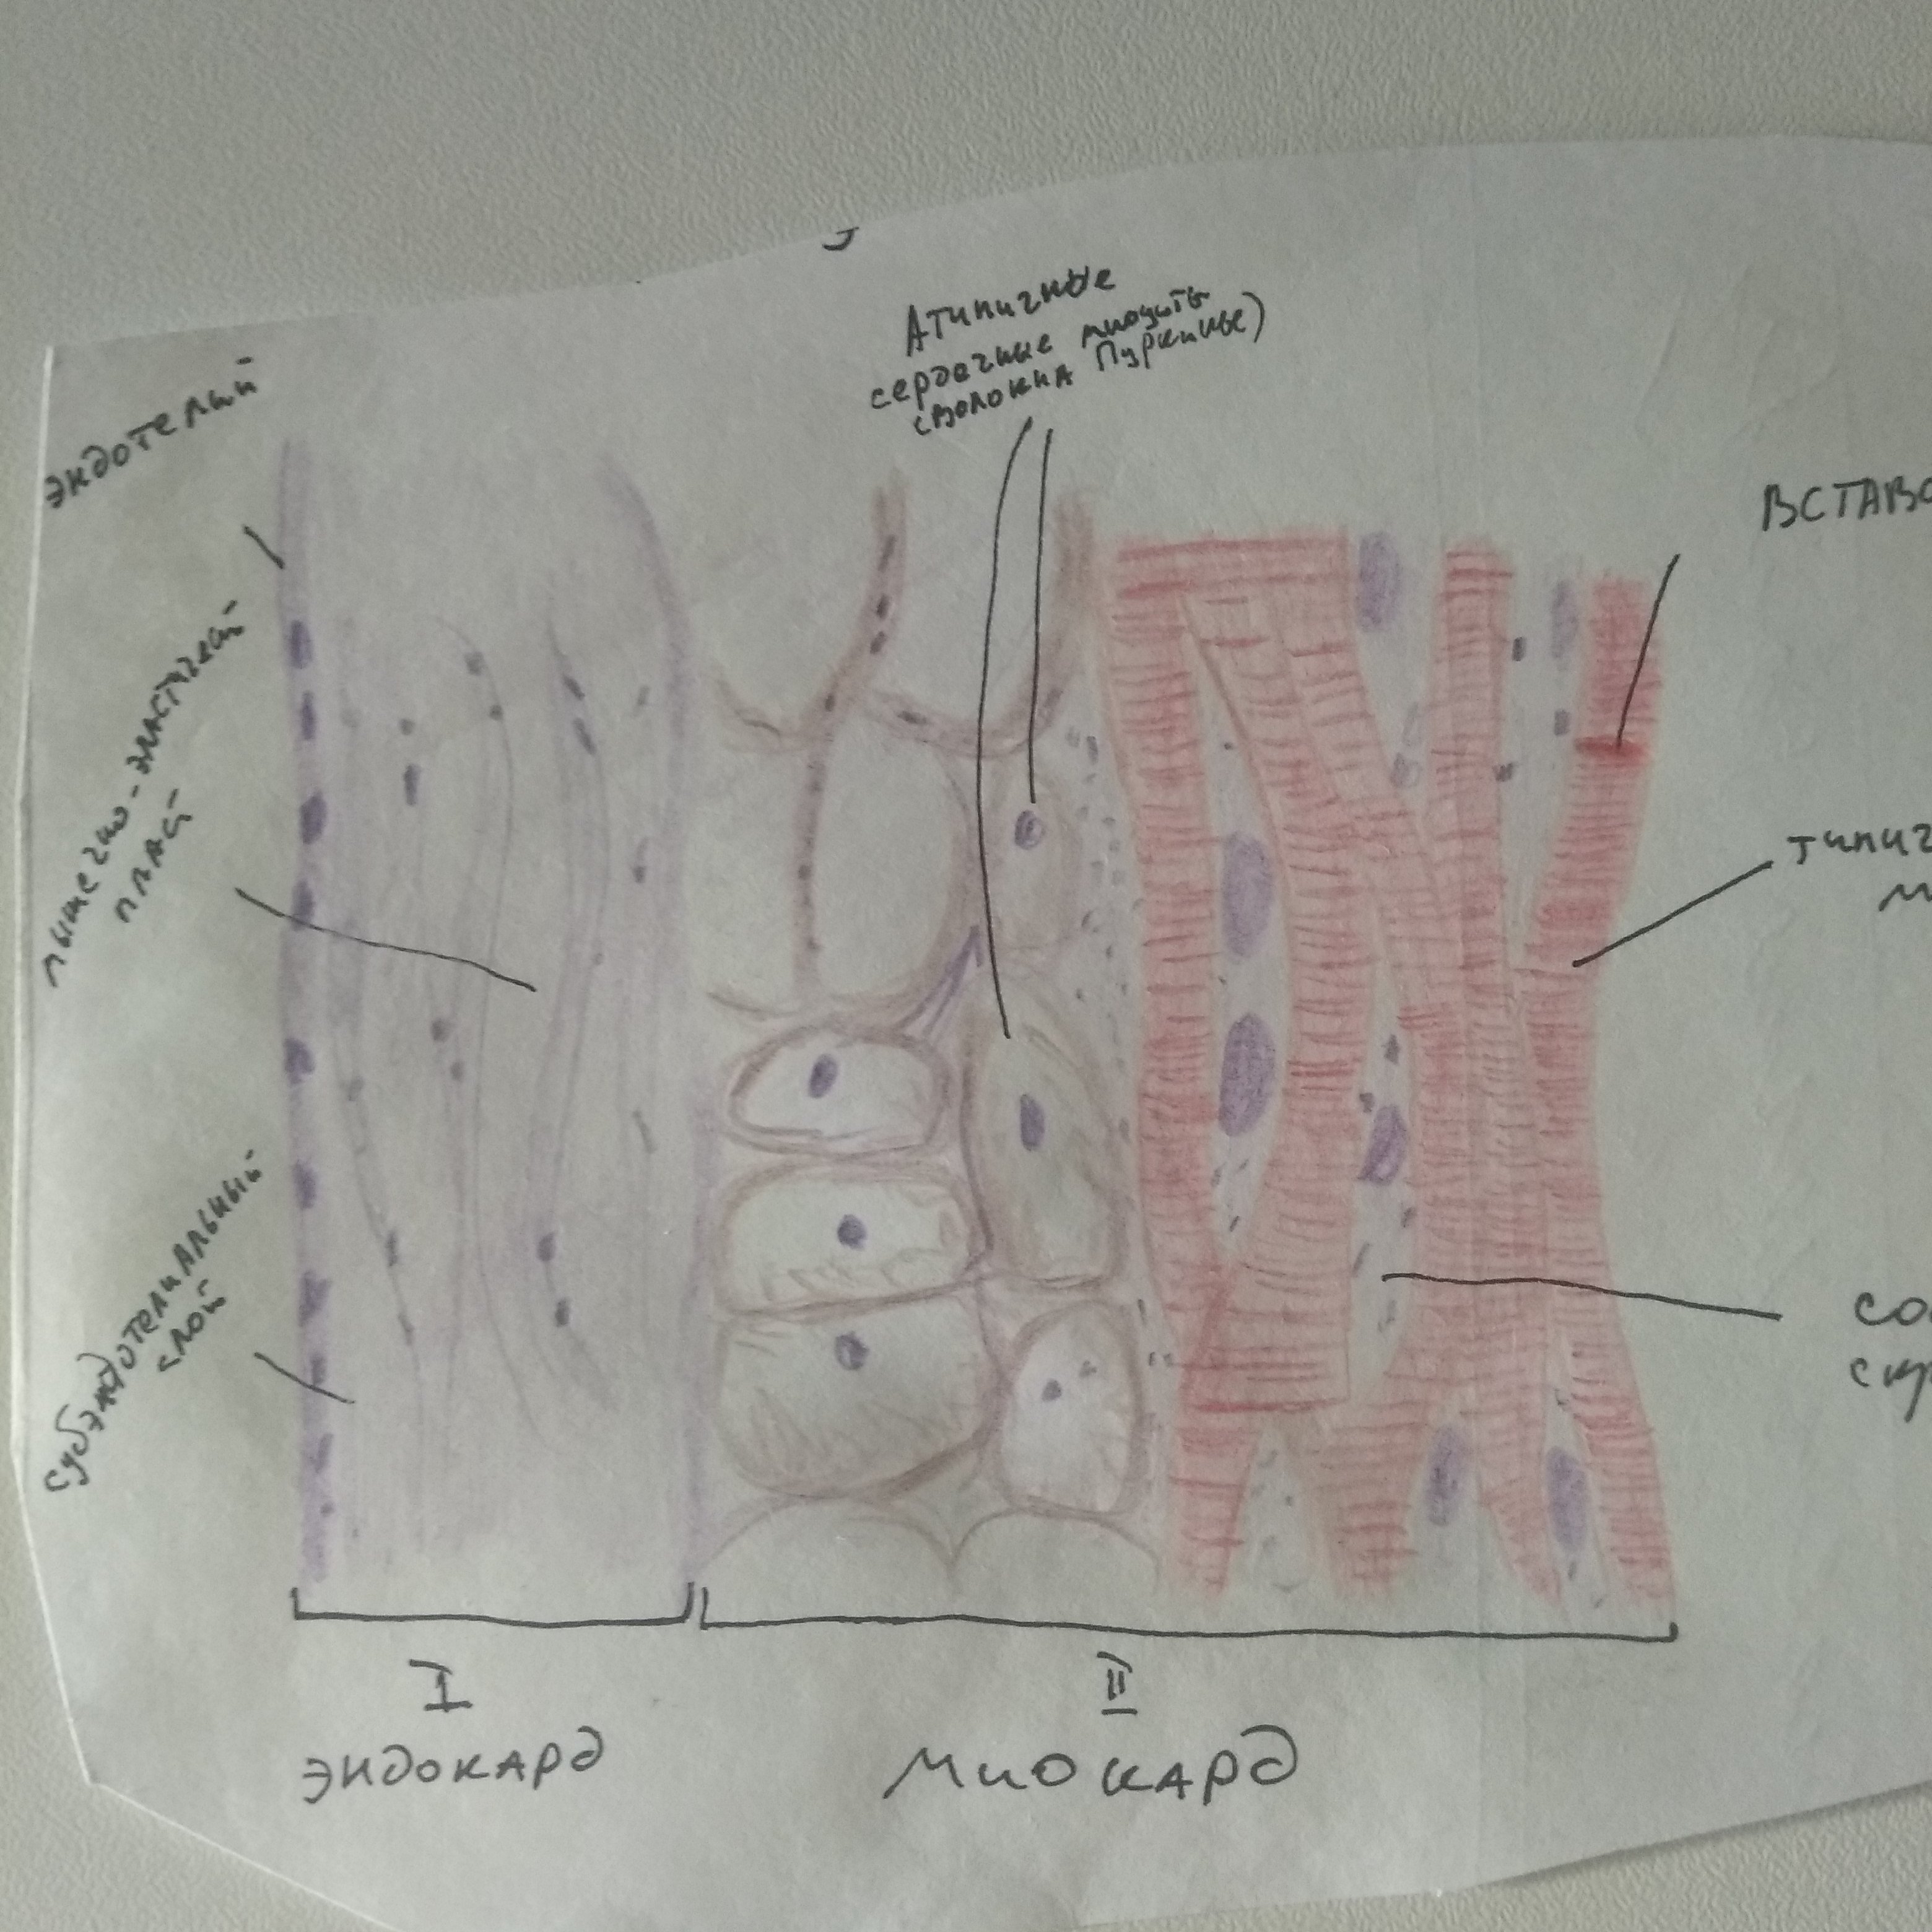 Атипичные
сердечные миоциты
(волокна Пуркинье)
эндотелий
мышечно-эластичес
пласт
субэндотелиальный
слой
ВСТАВО
типич
м
со
I
эндокард
II
миокард